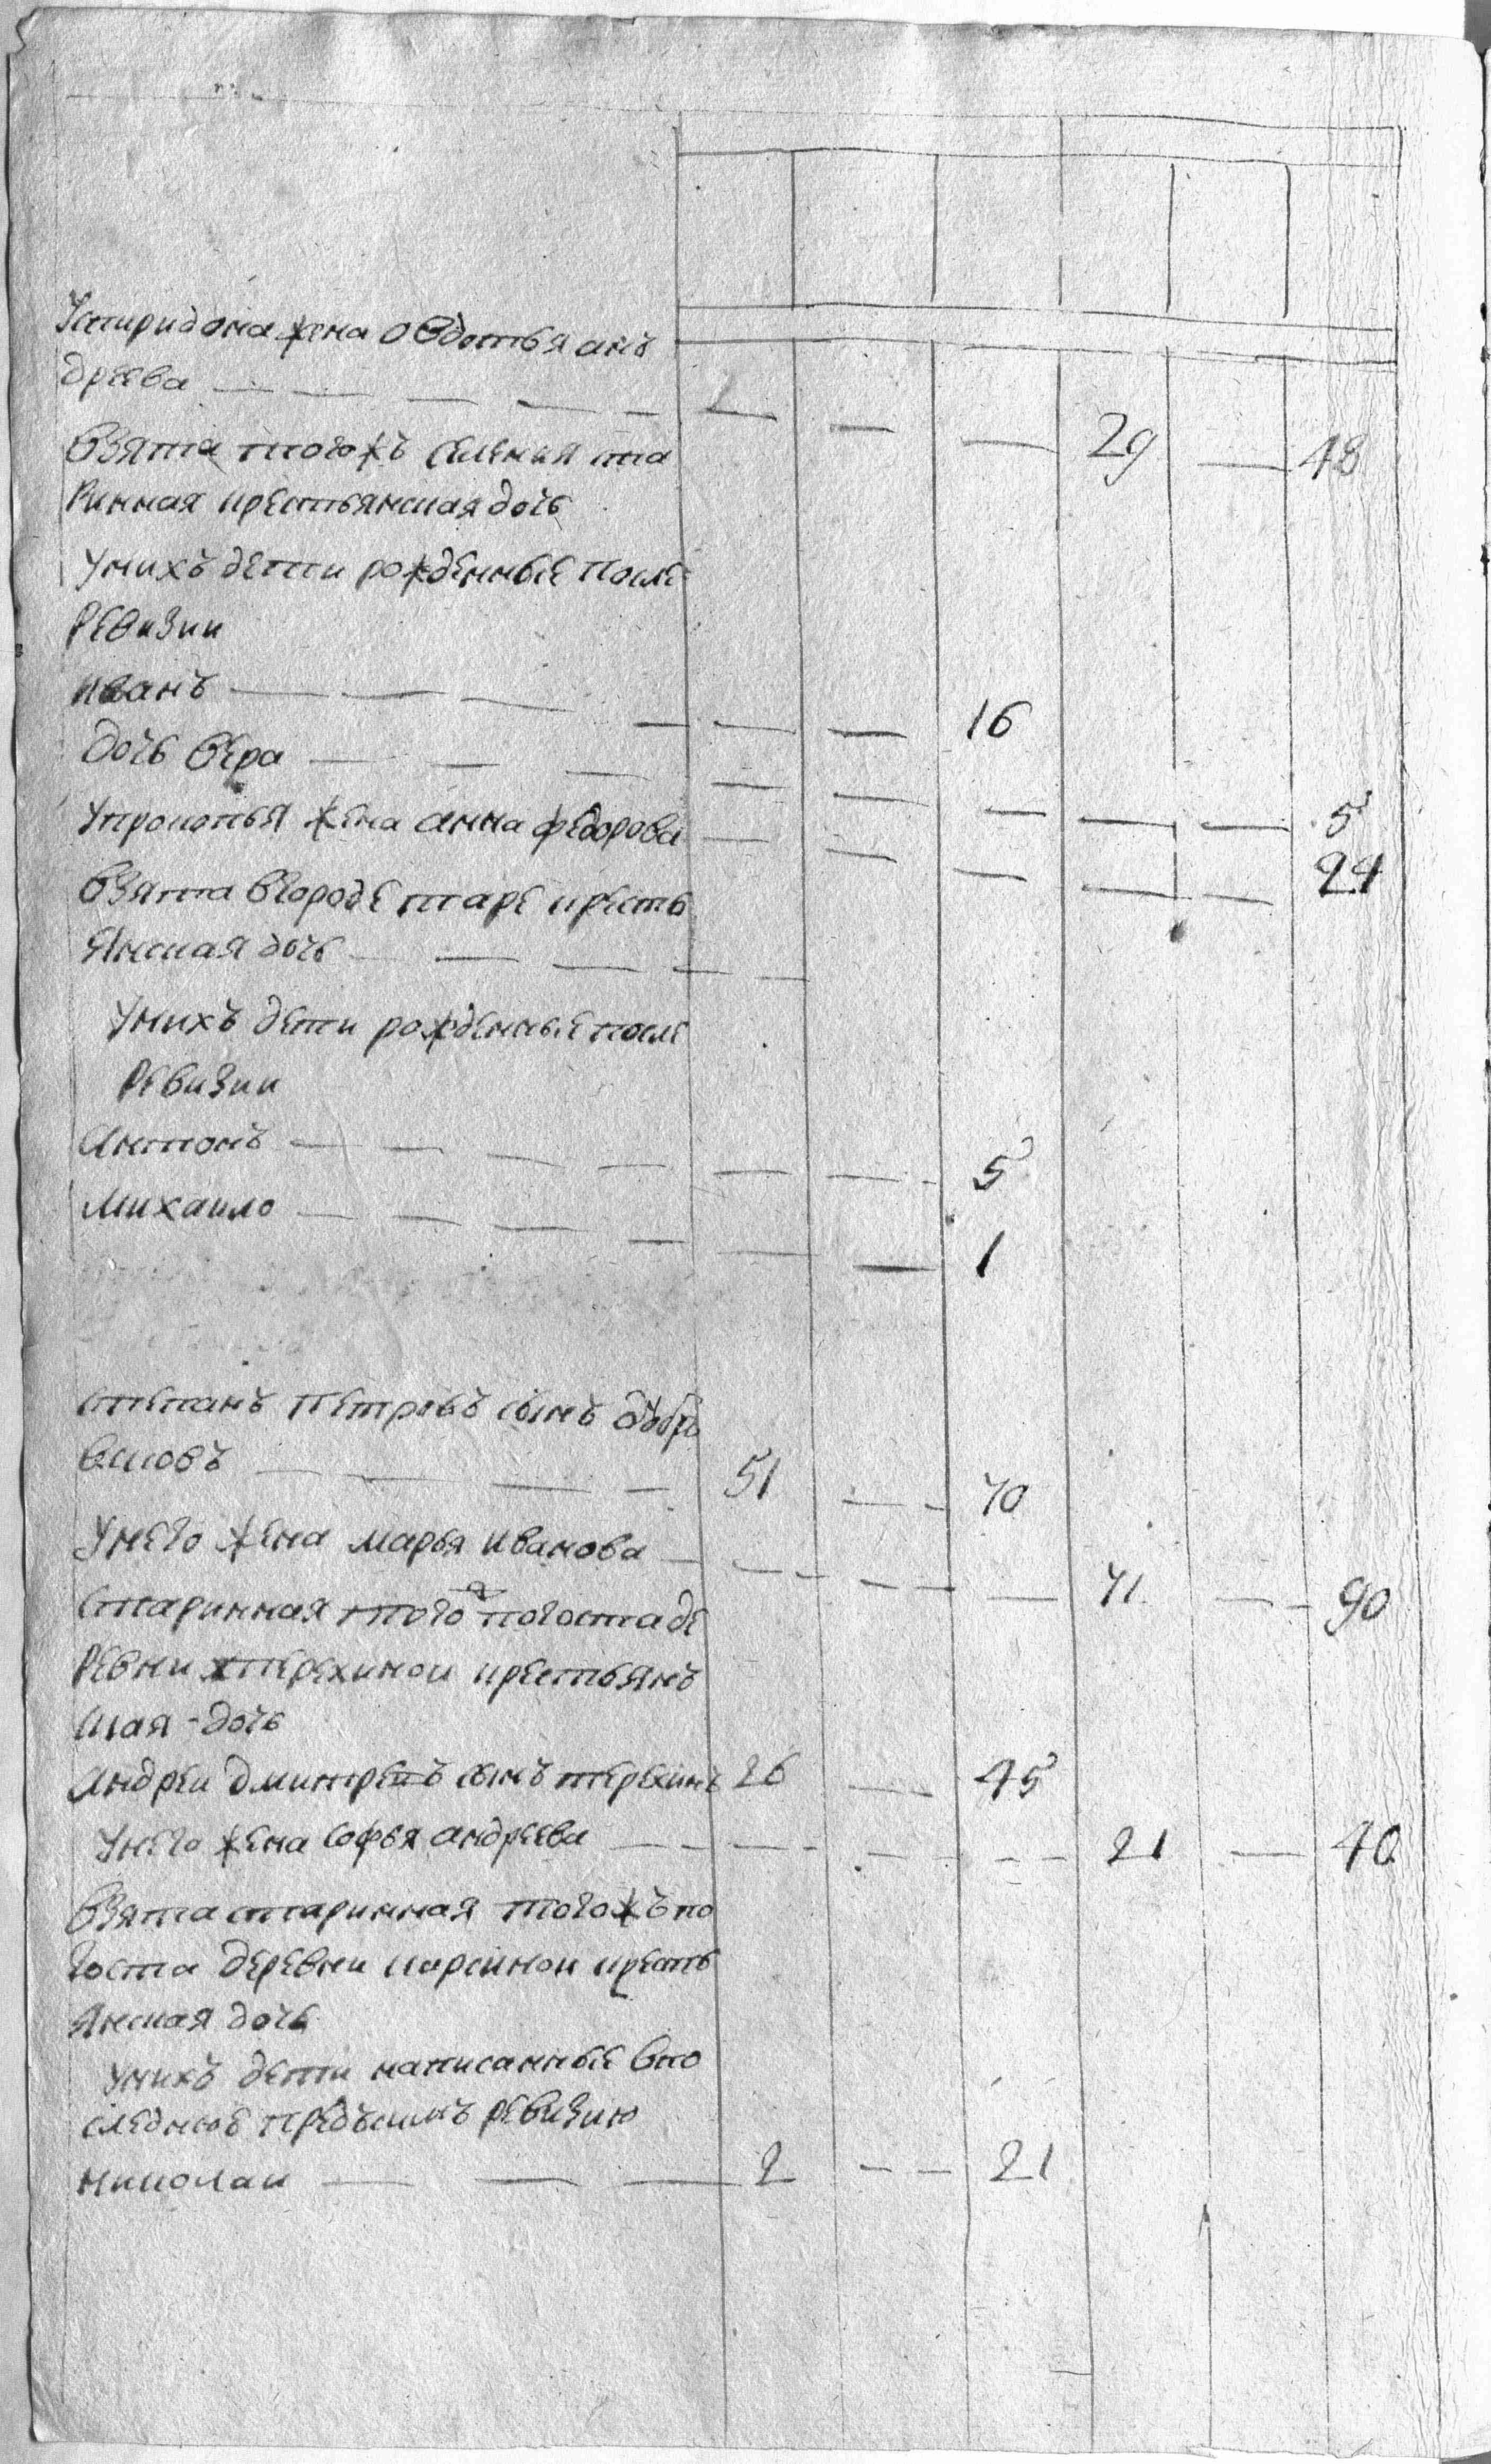 Успиридона жена овдотья анъ
дреева — — — — — — — 29 — 48
Взята тогожъ селения ста
ринная крестьянская дочь
Унихъ дети рожденные после
ревизии
иванъ — — — — — — 16
дочь вера — — — — — — — — 5
Упрокопья жена анна федорова — — — — — 24
Взята вгороде таре кресть
янская дочь — — — — —
Унихъ дети рожденные после
ревизии
Антонъ — — — — — — 5
Михаило — — — — — — 1
степанъ петровъ сынъ
— — — — 51 — — 70
Унего жена марья иванова — — — — — — 71 — — 90
старинная того погоста де
ревни терехиной крестьянъ
ская дочь
Андреи дмитревъ сынъ терехинъ 26 — 45
Унего жена софья андреева — — — — — — 21 — 40
Взята старинная тогожъ по
госта деревни кресть
янская дочь
Унихъ дети написанные впо
следнюю предъсимъ ревизию
николаи — — — 2 — — 21